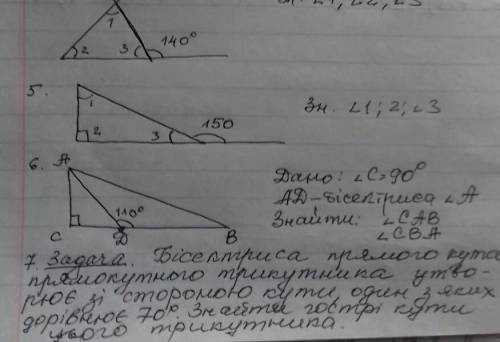 1
2 3 140°
5.
1
2 3 150
Зн. ∠1; 2; ∠3
6. A
110°
C D B
Дано: ∠C=90°
AD-бісектриса ∠A
Знайти: ∠CAB
∠CBA
7. Задача. Бісектриса прямого кута
прямокутного трикутника утво-
рює зі стороною кути, один з яких
дорівнює 70°. Знайти гострі кути
цього трикутника.